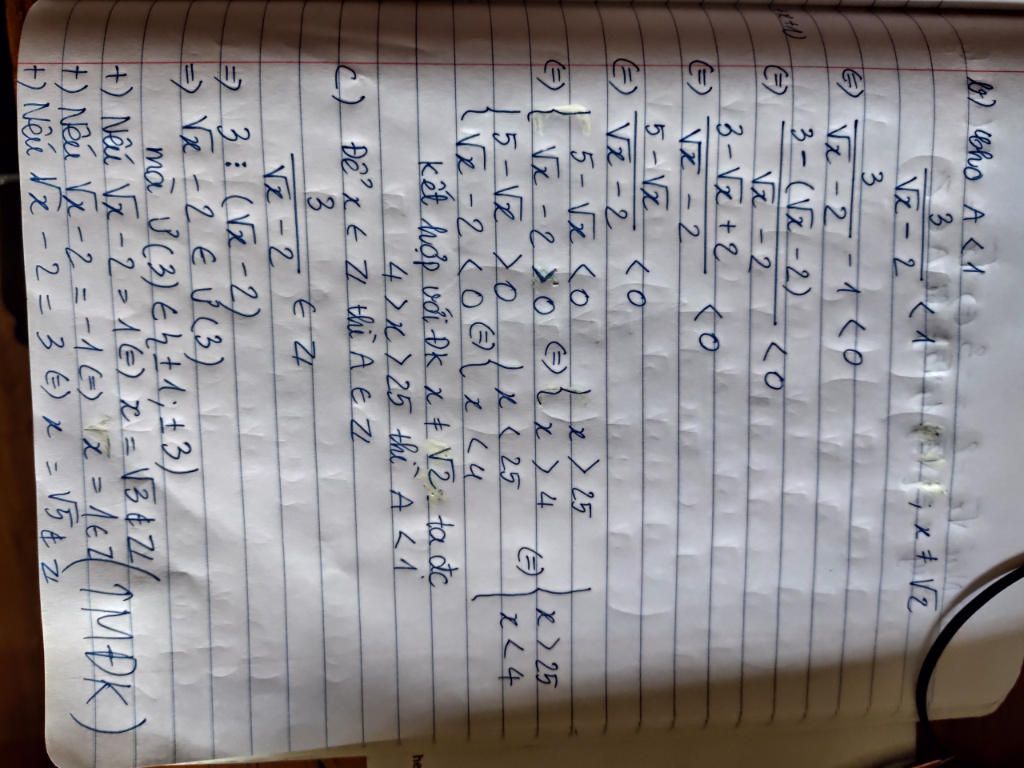 b) Cho A < 1
3/(√x - 2) < 1 ; x ≠ √2
(=) 3/(√x - 2) - 1 < 0
(=) (3 - (√x - 2))/(√x - 2) < 0
(=) (3 - √x + 2)/(√x - 2) < 0
(=) (5 - √x)/(√x - 2) < 0
(=) { 5 - √x < 0 ; √x - 2 > 0 (=) { x > 25 ; x > 4
{ 5 - √x > 0 ; √x - 2 < 0 (=) { x < 25 ; x < 4 (=) { x > 25 ; x < 4
Kết hợp với đk x ≠ √2 ta đc
4 > x > 25 thì A < 1
C) Để x ∈ Z thì A ∈ Z
3/(√x - 2) ∈ Z
=) 3 ⋮ (√x - 2)
=) √x - 2 ∈ Ư(3)
mà Ư(3) ∈ { ± 1; ± 3)
+) Nếu √x - 2 = 1 (=) x = √3 ∉ Z
+) Nếu √x - 2 = -1 (=) x = 1 ∈ Z (TMĐK)
+) Nếu √x - 2 = 3 (=) x = √5 ∉ Z